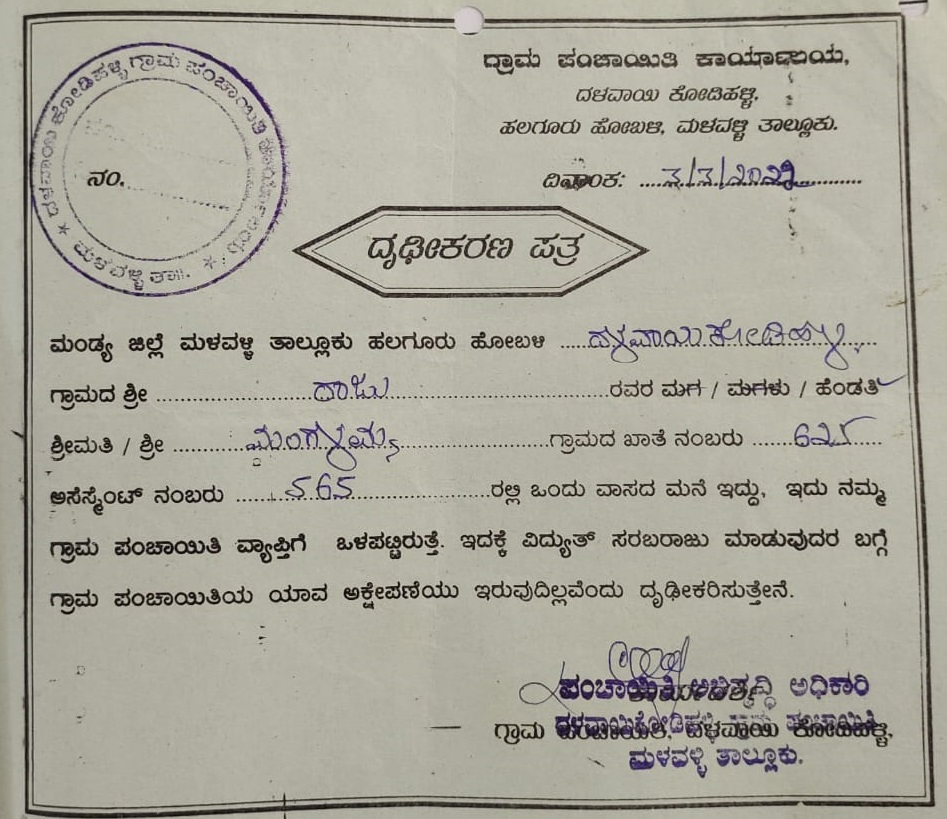 ದಳವಾಯಿ ಕೋಡಿಹಳ್ಳಿ ಗ್ರಾಮ ಪಂಚಾಯಿತಿ ಕಾರ್ಯಾಲಯ
* ಮಳವಳ್ಳಿ ತಾ|| *
ನಂ.
ಗ್ರಾಮ ಪಂಚಾಯಿತಿ ಕಾರ್ಯಾಲಯ,
ದಳವಾಯಿ ಕೋಡಿಹಳ್ಳಿ,
ಹಲಗೂರು ಹೋಬಳಿ, ಮಳವಳ್ಳಿ ತಾಲ್ಲೂಕು.
ದಿನಾಂಕ:
ದೃಢೀಕರಣ ಪತ್ರ
ಮಂಡ್ಯ ಜಿಲ್ಲೆ ಮಳವಳ್ಳಿ ತಾಲ್ಲೂಕು ಹಲಗೂರು ಹೋಬಳಿ ದಳವಾಯಿಕೋಡಿಹಳ್ಳಿ
ಗ್ರಾಮದ ಶ್ರೀ ರಾಜು ರವರ ಮಗ / ಮಗಳು / ಹೆಂಡತಿ
ಶ್ರೀಮತಿ / ಶ್ರೀ ಮಂಗಳಮ್ಮ ಗ್ರಾಮದ ಖಾತೆ ನಂಬರು 625
ಅಸೆಸ್ಮೆಂಟ್ ನಂಬರು 565 ರಲ್ಲಿ ಒಂದು ವಾಸದ ಮನೆ ಇದ್ದು, ಇದು ನಮ್ಮ
ಗ್ರಾಮ ಪಂಚಾಯಿತಿ ವ್ಯಾಪ್ತಿಗೆ ಒಳಪಟ್ಟಿರುತ್ತೆ. ಇದಕ್ಕೆ ವಿದ್ಯುತ್ ಸರಬರಾಜು ಮಾಡುವುದರ ಬಗ್ಗೆ
ಗ್ರಾಮ ಪಂಚಾಯಿತಿಯ ಯಾವ ಅಕ್ಷೇಪಣೆಯು ಇರುವುದಿಲ್ಲವೆಂದು ದೃಢೀಕರಿಸುತ್ತೇನೆ.
ಪಂಚಾಯಿತಿ ಅಭಿವೃದ್ಧಿ ಅಧಿಕಾರಿ
ದಳವಾಯಿಕೋಡಿಹಳ್ಳಿ ಗ್ರಾಮ ಪಂಚಾಯಿತಿ
ಗ್ರಾಮ ಪಂಚಾಯಿತಿ, ದಳವಾಯಿ ಕೋಡಿಹಳ್ಳಿ,
ಮಳವಳ್ಳಿ ತಾಲ್ಲೂಕು.